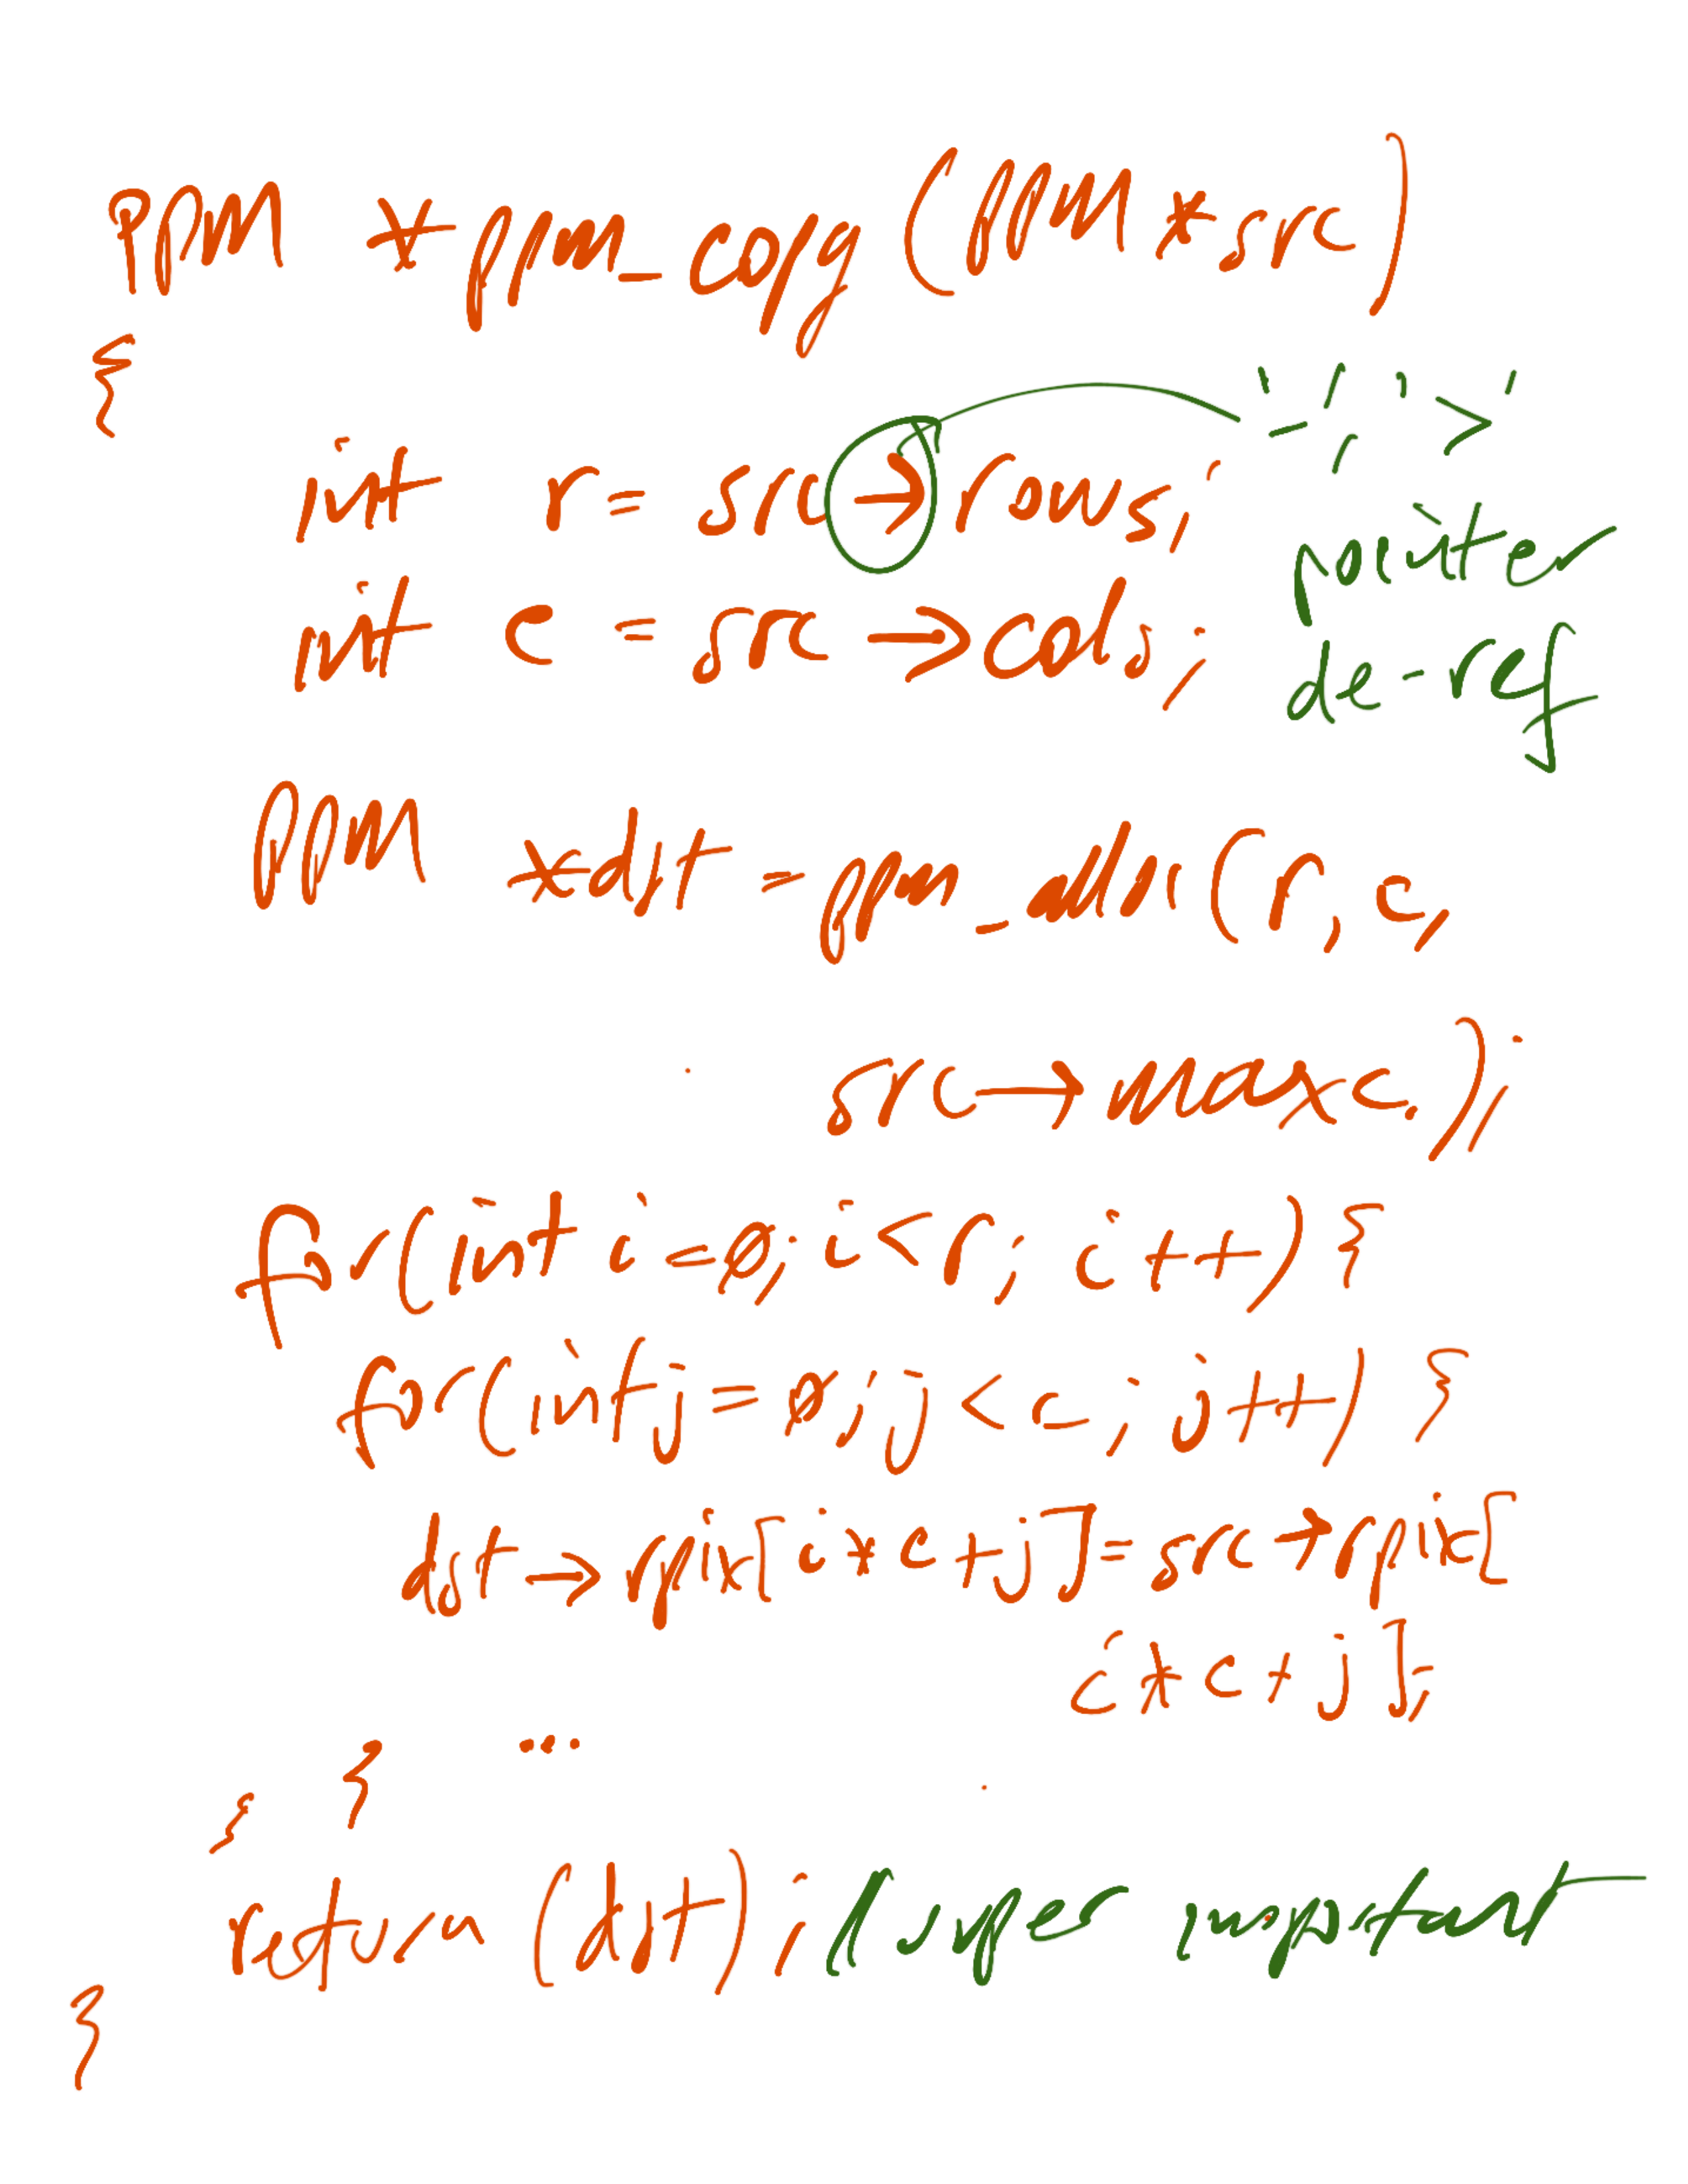 PPM *ppm_copy (PPM *src)
{
'-', '>'
int r = src→rows;
pointer
int c = src→cols;
de-ref
PPM *dst = ppm_alloc(r, c,
src→maxc);
for(int i=0; i<r; i++){
for(int j=0; j<c; j++) {
dst→rpix[i*c+j]=src→rpix[
i*c+j];
} ...
}
return (dst); // super important
}